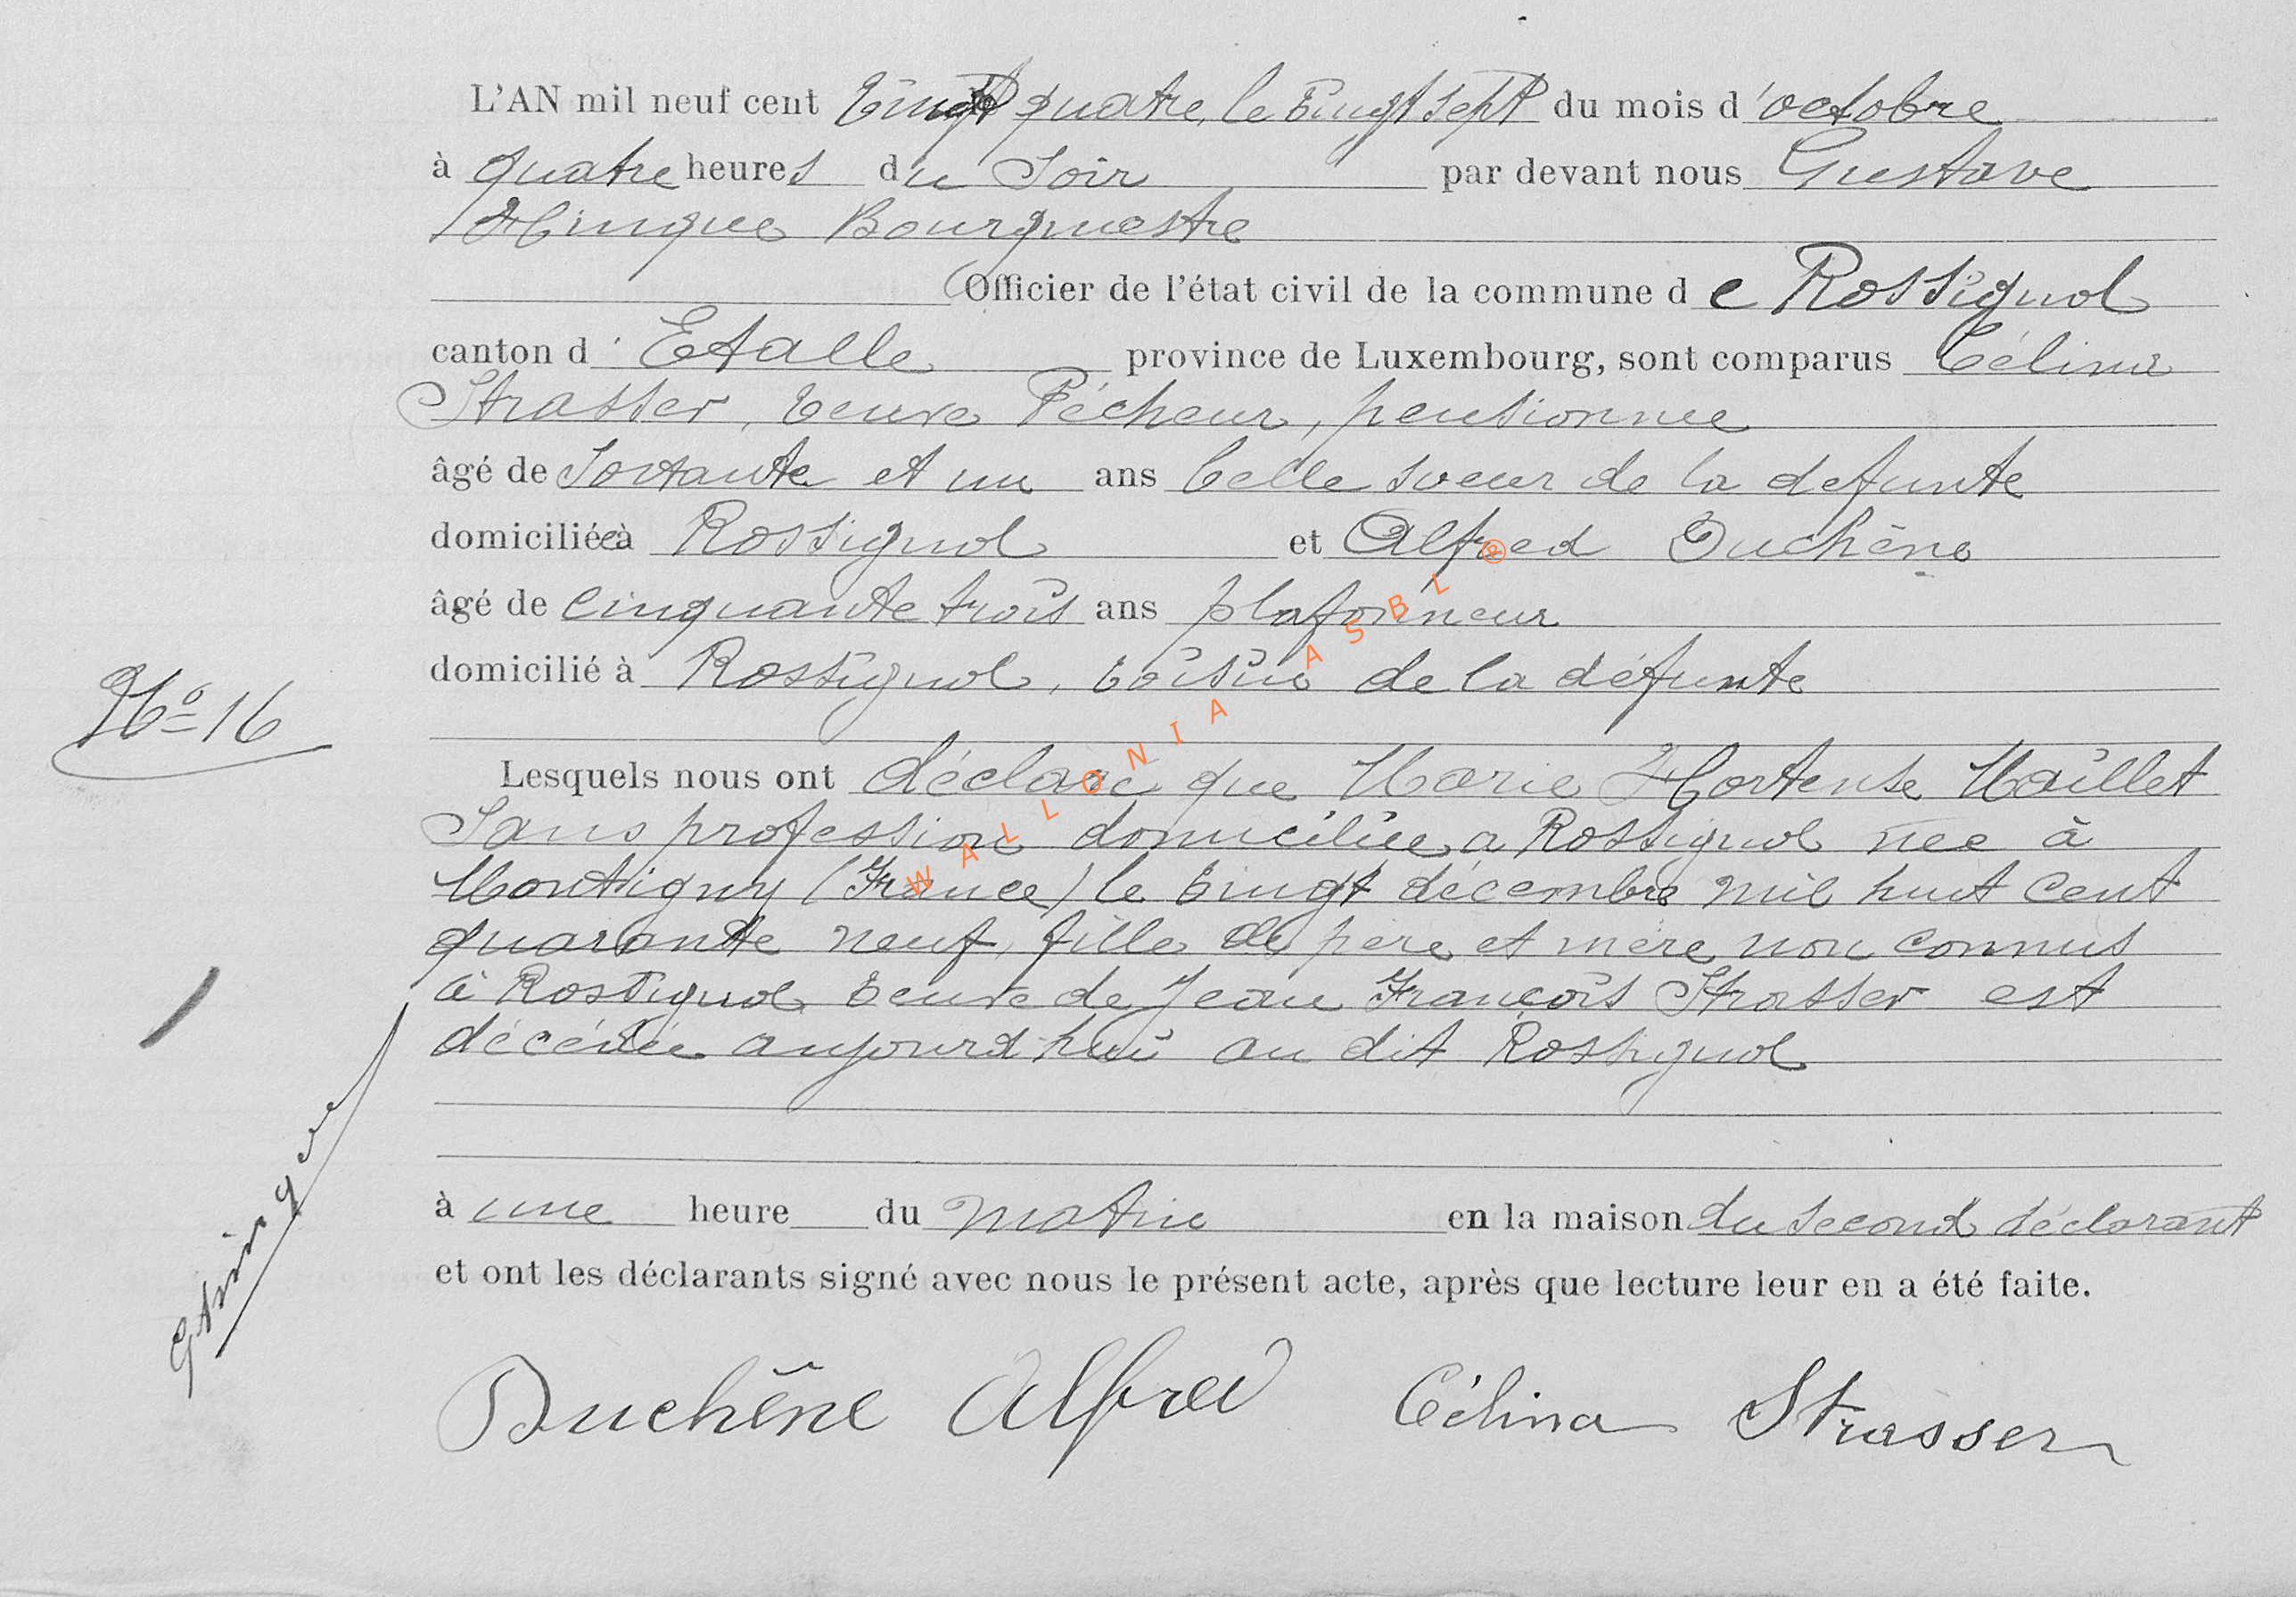 L'AN mil neuf cent vingt quatre, le vingt sept du mois d'octobre
à quatre heures du Soir par devant nous Gustave
Hinque Bourgmestre
Officier de l'état civil de la commune de Rossignol
canton d'Etalle province de Luxembourg, sont comparus Célina
Strasser, veuve Pécheur, pensionnee
âgé de Soixante et un ans belle soeur de la defunte
domiciliée à Rossignol et Alfred Duchêne
âgé de cinquante trois ans plafonneur
domicilié à Rossignol, voisin de la défunte
No 16
Lesquels nous ont déclaré que Marie Hortense Maillet
Sans profession domiciliée a Rossignol née à
Montigny (France) le vingt décembre mil huit cent
quarante neuf, fille de père et mère non connus
à Rossignol veuve de Jean François Strasser est
décédée aujourd'hui au dit Rossignol
à une heure du matin en la maison du second déclarant
et ont les déclarants signé avec nous le présent acte, après que lecture leur en a été faite.
Duchêne Alfred Célina Strasser
WALLONIA ASBL ®